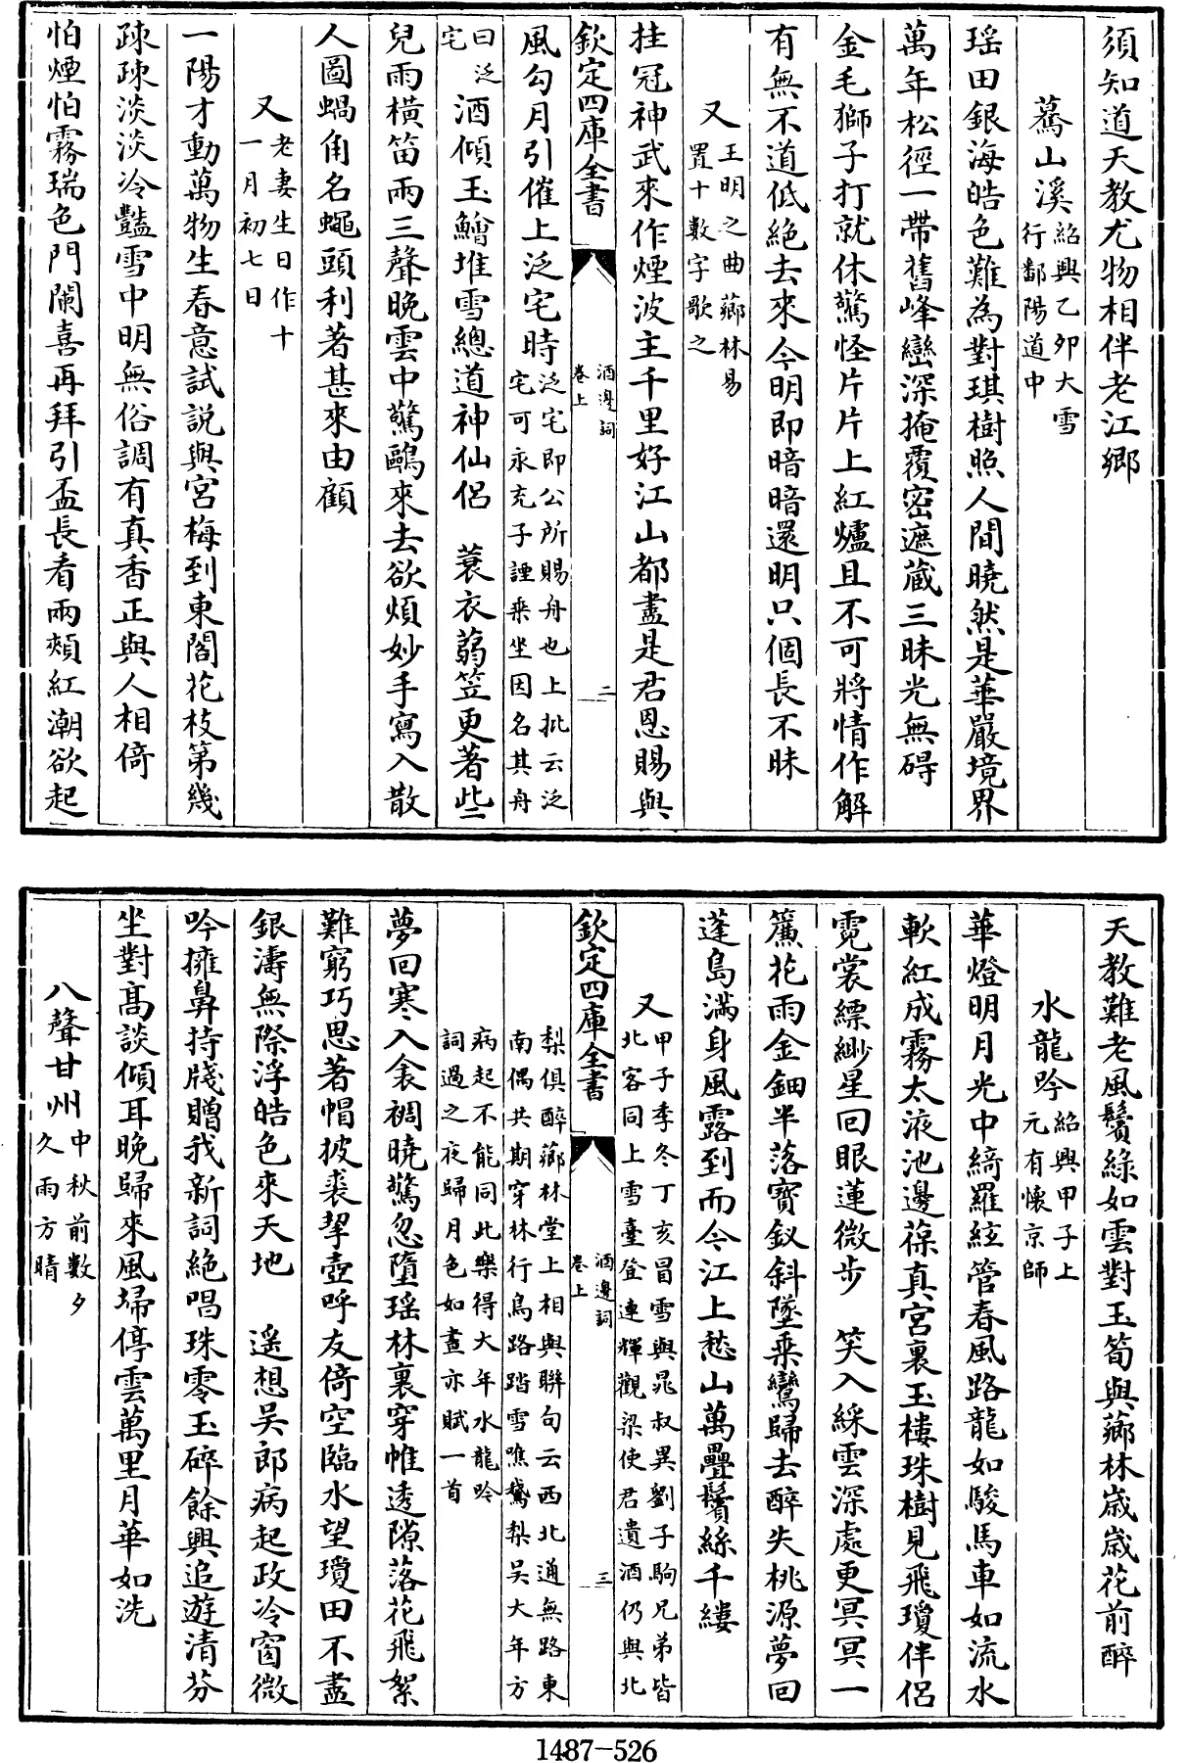 須知道天教尤物相伴老江鄉
驀山溪紹興乙卯大雪
行鄱陽道中
瑶田銀海皓色難為對琪樹照人間曉然是華嚴境界
萬年松徑一帶舊峰巒深掩覆密遮蔵三昧光無碍
金毛獅子打就休驚怪片片上紅爐且不可將情作解
有無不道低絶去來今明即暗暗還明只個長不昧
又王明之曲薌林易
置十數字歌之
挂冠神武來作煙波主千里好江山都盡是君恩賜與
欽定四庫全書
酒邊詞
卷上
二
風勾月引催上泛宅時泛宅即公所賜舟也上批云泛
宅可永充子諲乘坐因名其舟
曰泛
宅
酒傾玉鱠堆雪總道神仙侣 蓑衣蒻笠更著些
兒雨橫笛兩三聲晚雲中驚鷗來去欲煩妙手寫入散
人圖蝸角名蠅頭利著甚來由顧
又老妻生日作十
一月初七日
一陽才動萬物生春意試説與宮梅到東閤花枝第幾
疎疎淡淡冷豔雪中明無俗調有真香正與人相倚
怕煙怕霧瑞色門闌喜再拜引盃長看兩頰紅潮欲起
天教難老風鬢綠如雲對玉筍與薌林歳歳花前醉
水龍吟紹興甲子上
元有懷京師
華燈明月光中綺羅絃管春風路龍如駿馬車如流水
軟紅成霧太液池邊葆真宮裏玉樓珠樹見飛瓊伴侣
霓裳縹緲星回眼蓮微步 笑入綵雲深處更冥冥一
簾花雨金鈿半落寶釵斜墜乘鸞歸去醉失桃源夢回
蓬島滿身風露到而今江上愁山萬疊鬢絲千縷
又甲子季冬丁亥冒雪與晁叔異劉子駒兄弟皆
北客同上雪臺登連輝觀梁使君遺酒仍與北
欽定四庫全書
酒邊詞
卷上
三
梨俱醉薌林堂上相與聯句云西北通無路東
南偶共期穿林行鳥路踏雪噍鵞梨吴大年方
病起不能同此樂得大年水龍吟
詞過之夜歸月色如晝亦賦一首
夢回寒入衾裯曉驚忽墮瑶林裏穿帷透隙落花飛絮
難窮巧思著帽披裘挈壺呼友倚空臨水望瓊田不盡
銀濤無際浮皓色來天地 遥想吴郎病起政冷窗微
吟擁鼻持牋贈我新詞絶唱珠零玉碎餘興追遊清芬
坐對髙談傾耳晚歸來風埽停雲萬里月華如洗
八聲甘州中秋前數夕
久雨方晴
1487-526